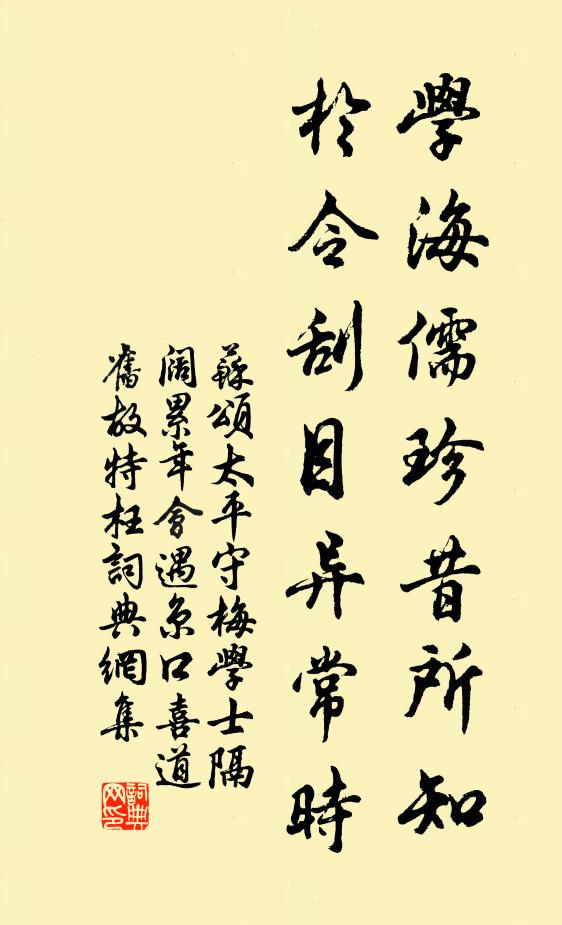 學海儒珍昔所知
於今刮目异常時
蘇頌太平守梅學士隔
闊累年會遇京口喜道
舊故特枉詞典網集
詞典网印